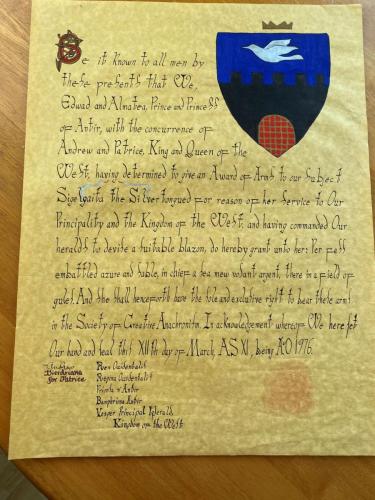 Be it known to all men by
these presents that We,
Edwad and Almatea, Prince and Princess
of Antir, with the concurrence of
Andrew and Patrice, King and Queen of the
West, having determined to give an Award of Arms to our subject
the Silvertongued for reason of her service to Our
Principality and the Kingdom of the West, and having commanded Our
heralds to devise a suitable blazon, do hereby grant unto her: Per fess
embattled azure and sable, in chief a sea mew volant argent, there in a field of
gules. And she shall henceforth have the sole and exclusive right to bear these arms
in the Society of Creative Anachronism. In acknowledgement whereof We here set
Our hand and seal this XIIth day of March, AS XI, being AD 1976.
for Patrice
Rex Ouidentalis
Regina Ouidentalis
Princeps Antir
Vesper Principal Herald,
Kingdom of the West